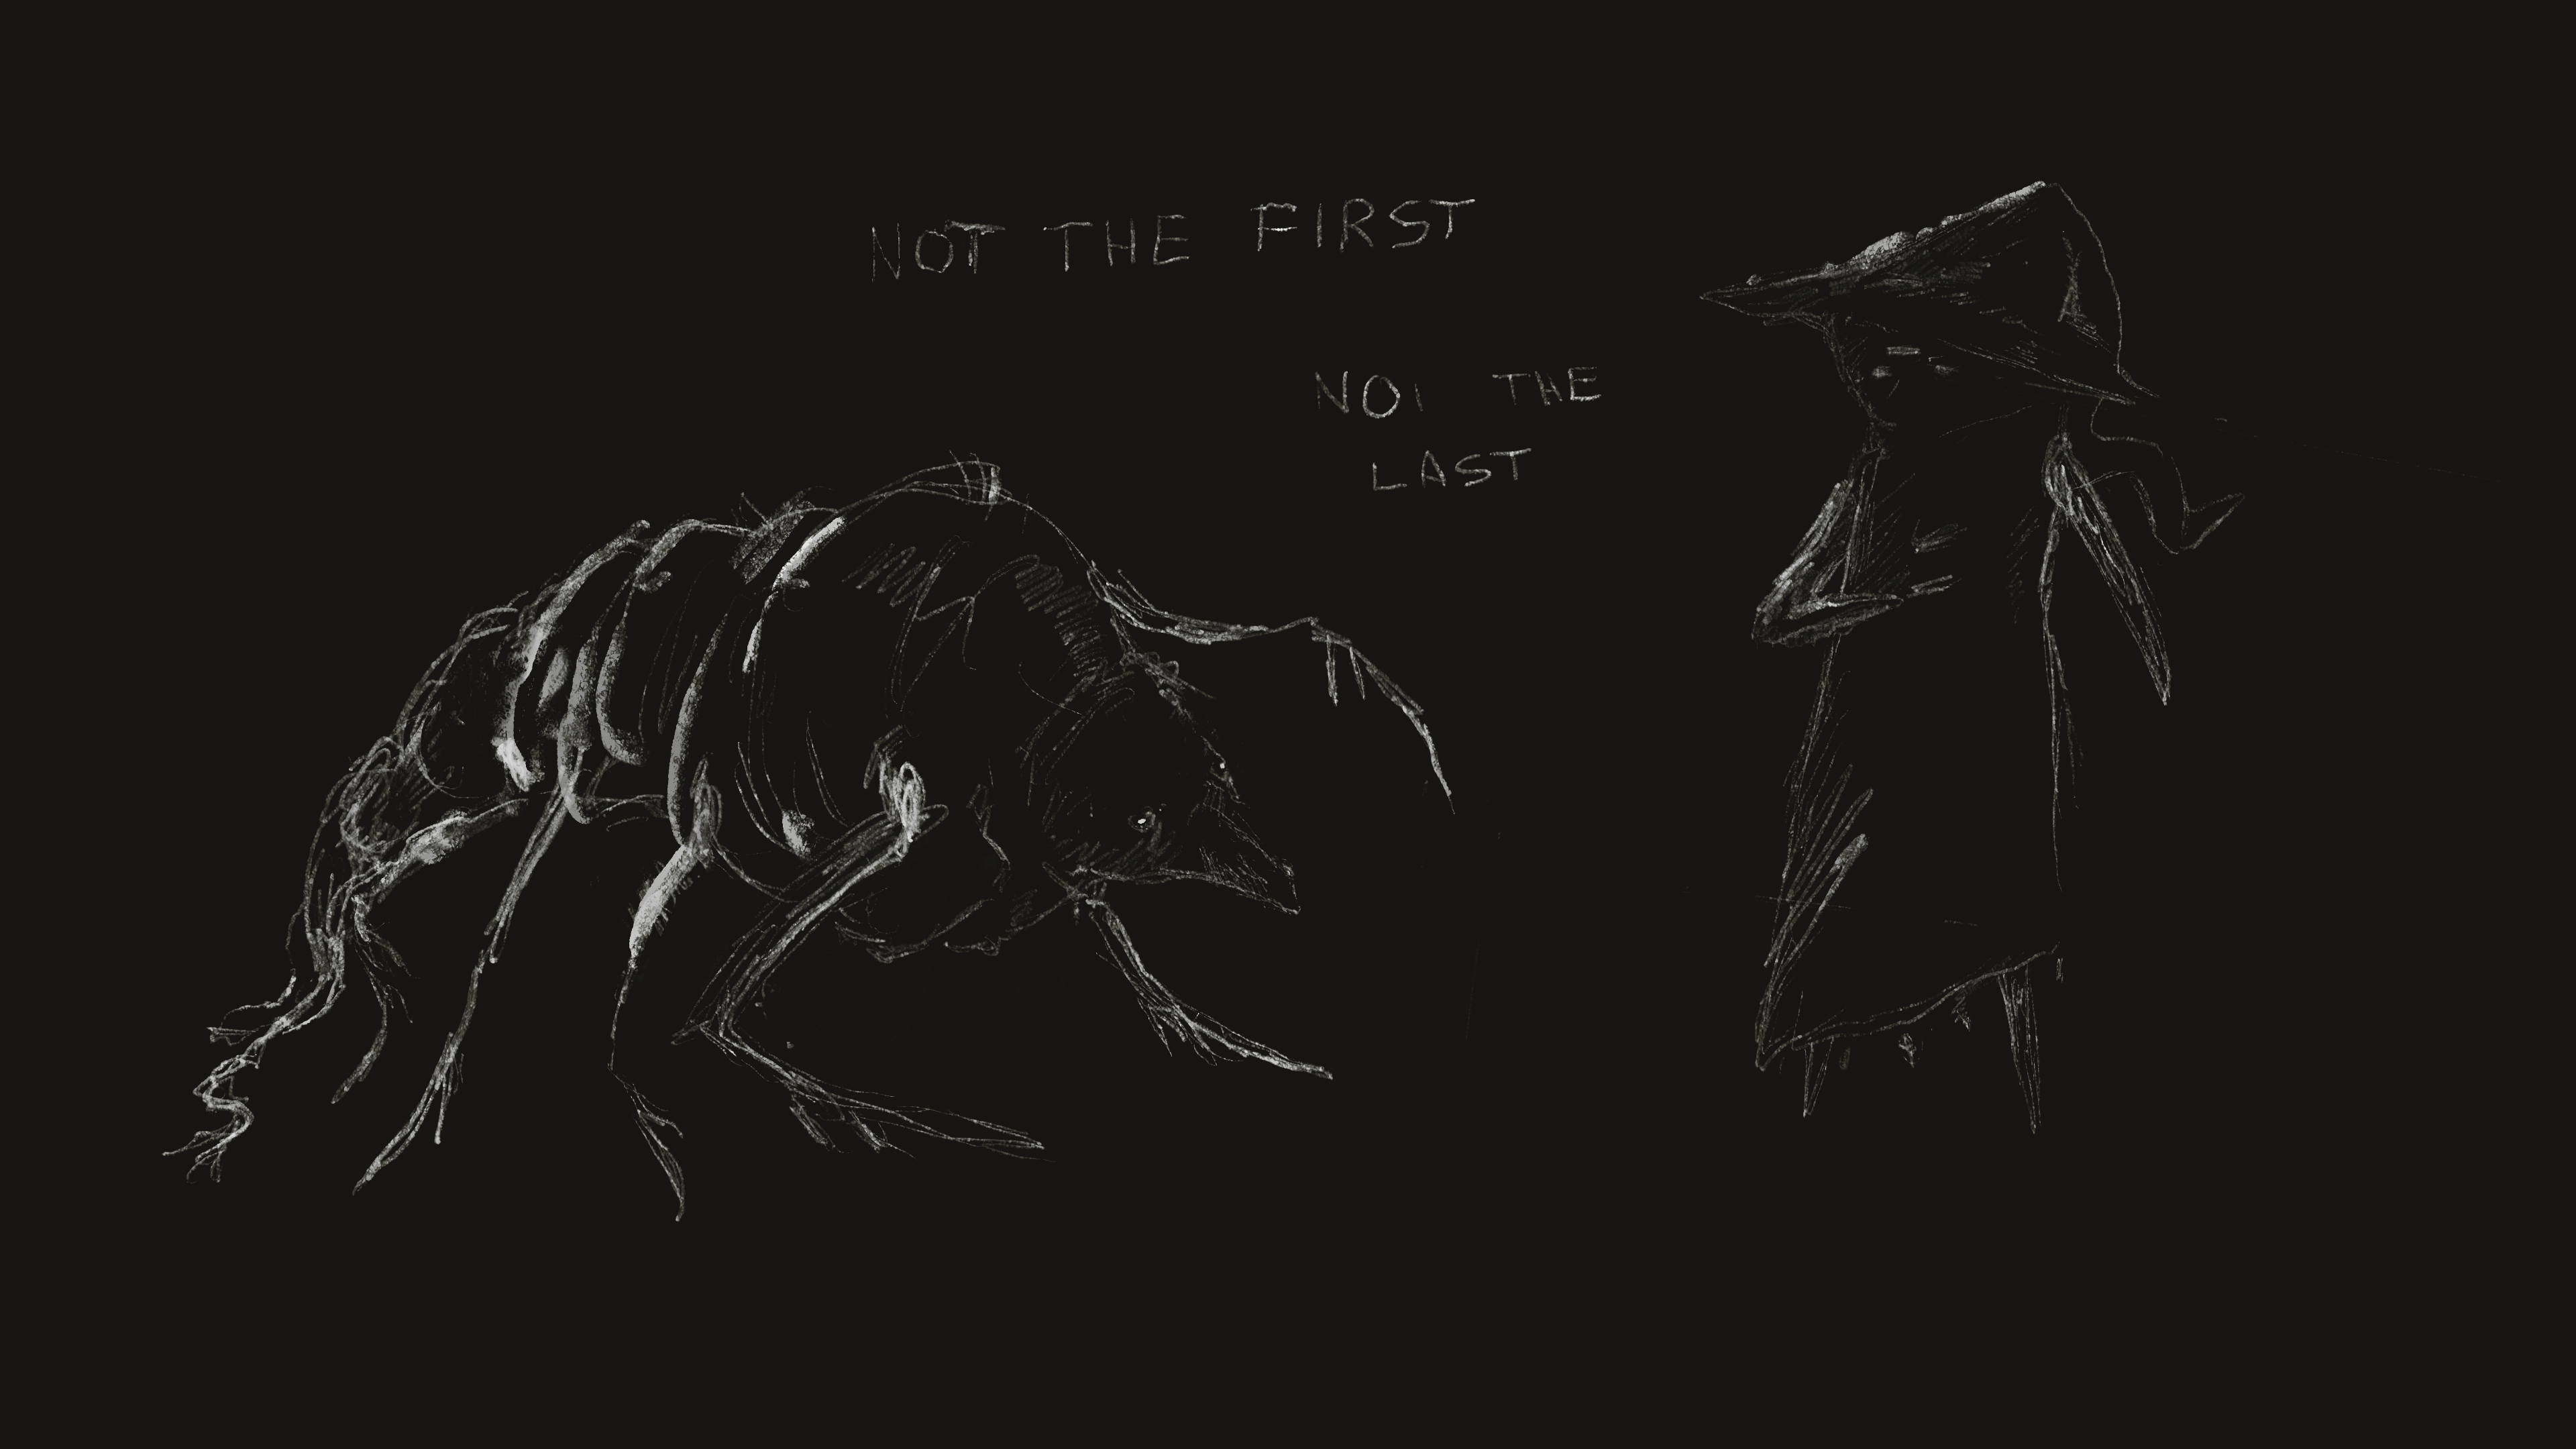 NOT THE FIRST
NOT THE
LAST